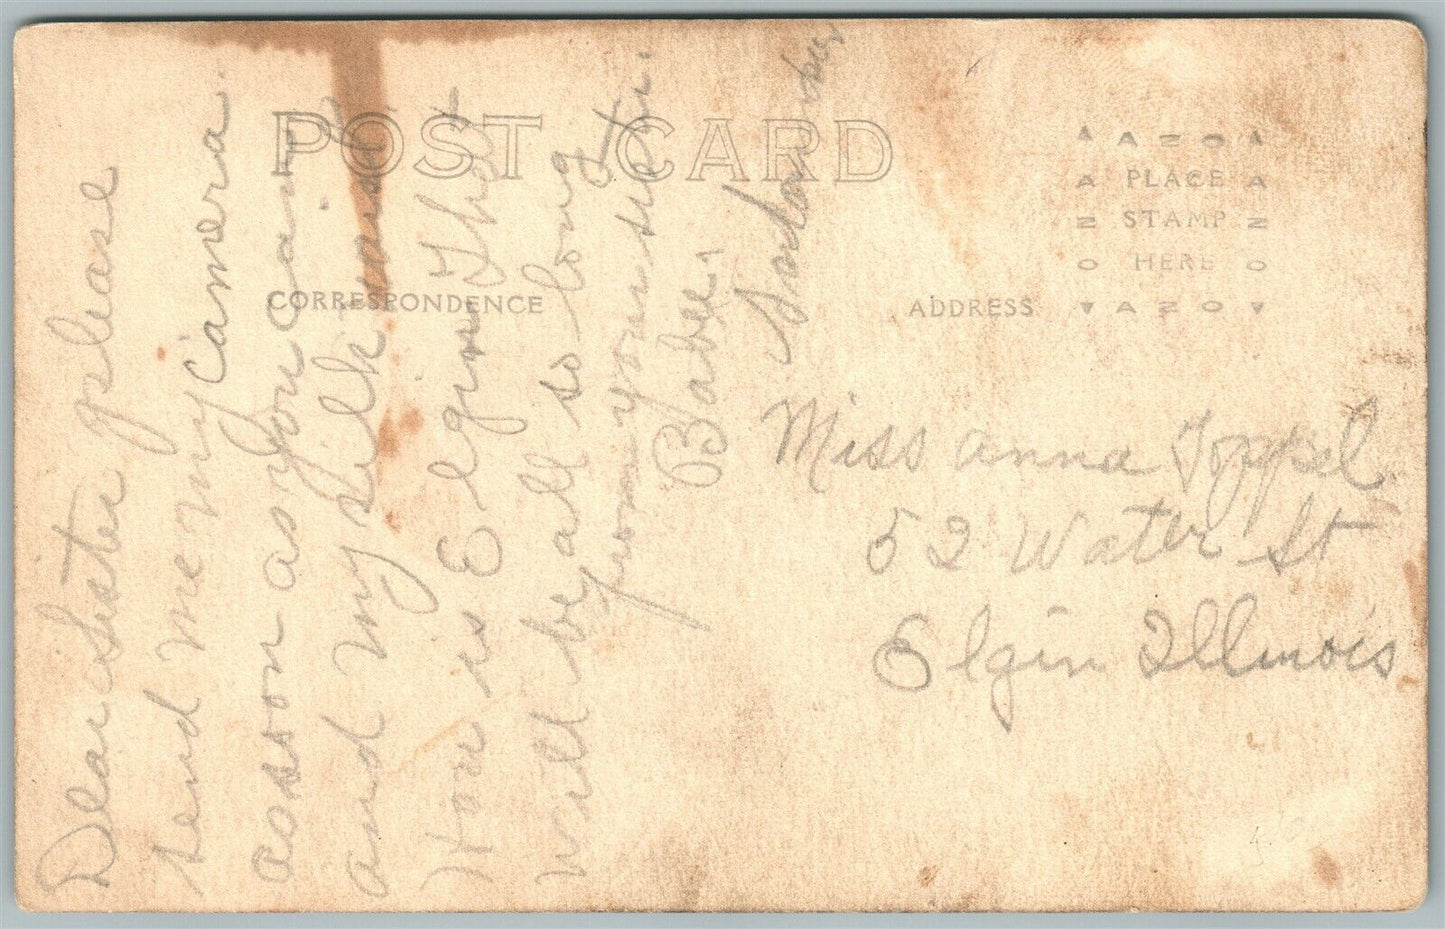 POST CARD
CORRESPONDENCE
ADDRESS
AZO
PLACE
STAMP
HERE
AZO
Dear Sister please
send me my camera.
as soon as you can
and my silk
How is Elgin That
will be all so long
from your sister.
Babe.
Miss Anna Toppel
52 Water St
Elgin Illinois